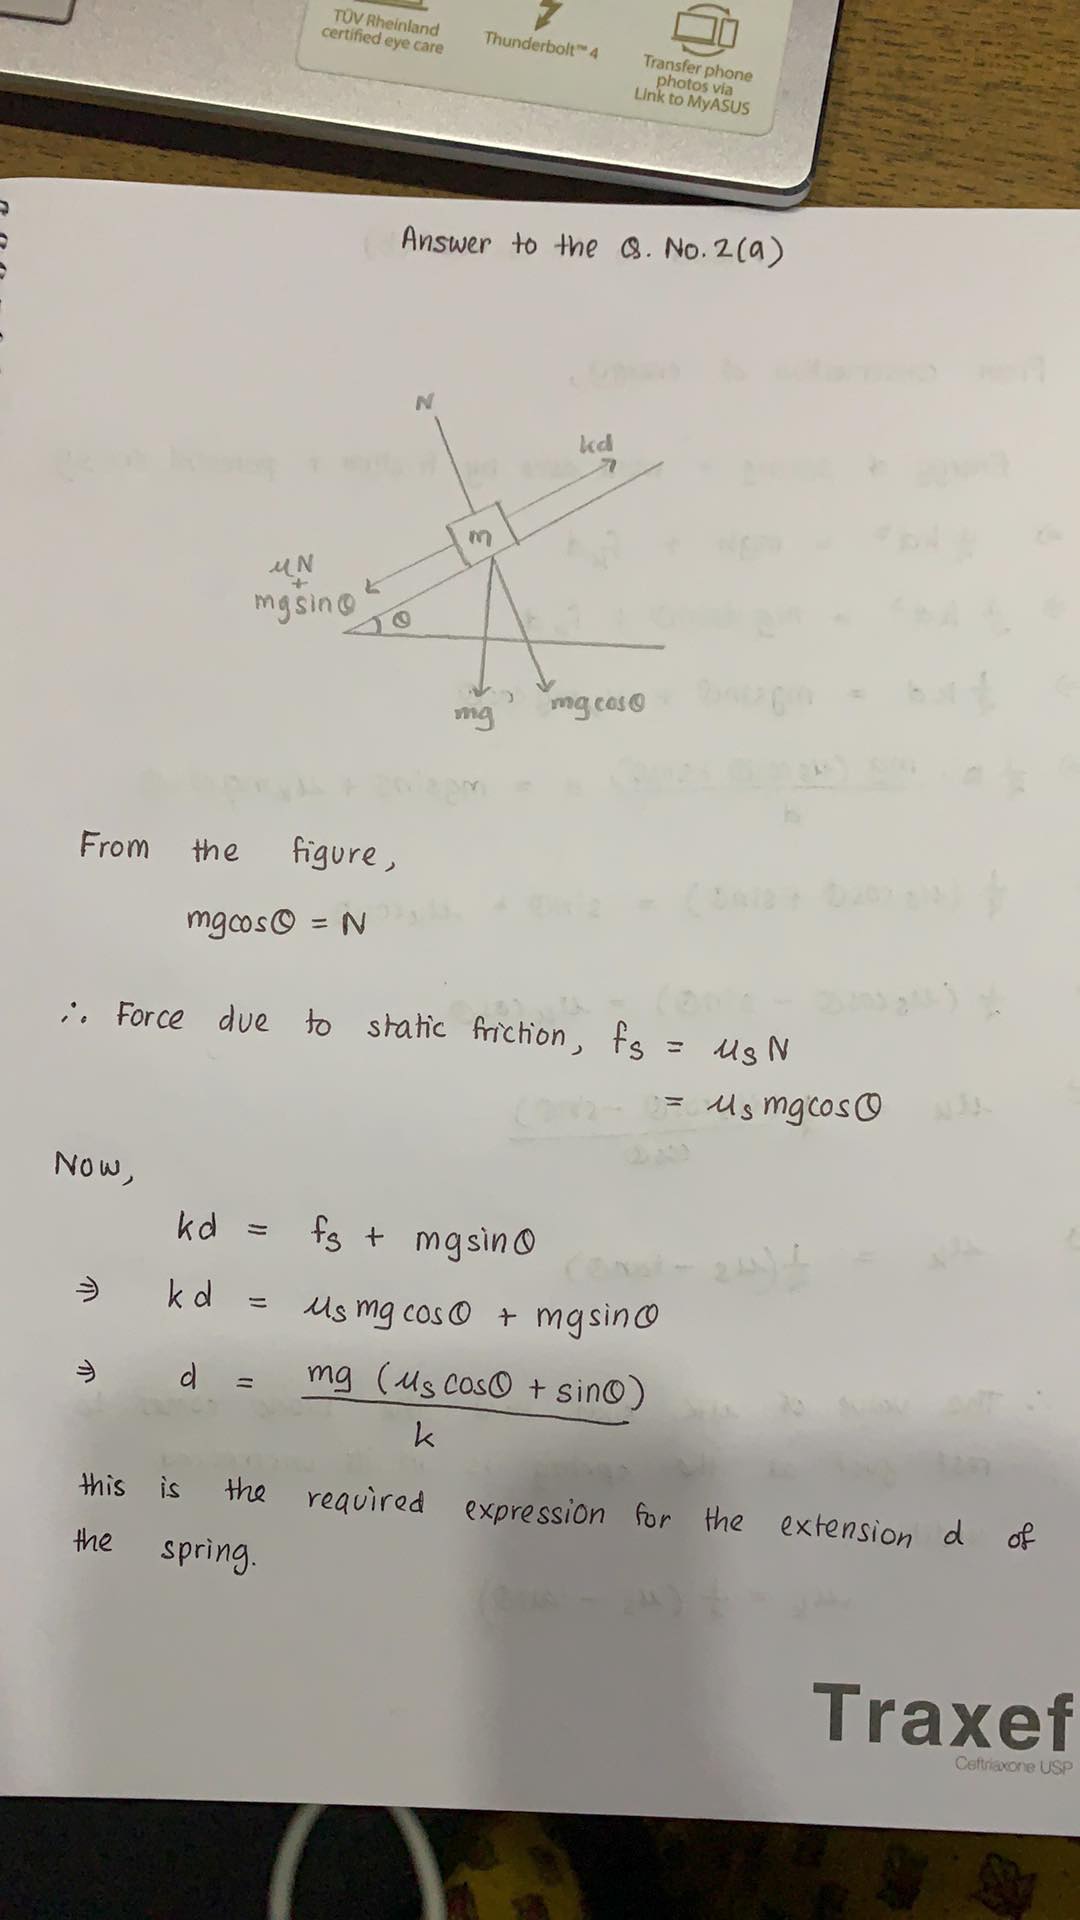 TÜV Rheinland
certified eye care
Thunderbolt™ 4
Transfer phone
photos via
Link to MyASUS
Answer to the Q. No. 2(a)
N
kd
m
μN
+
mgsinθ
θ
mg
mgcosθ
From the figure,
mgcosθ = N
∴ Force due to static friction, fs = μs N
= μs mgcosθ
Now,
kd = fs + mgsinθ
⇒ kd = μs mg cosθ + mgsinθ
⇒ d = mg (μs cosθ + sinθ)
k
this is the required expression for the extension d of
the spring.
Traxef
Ceftriaxone USP